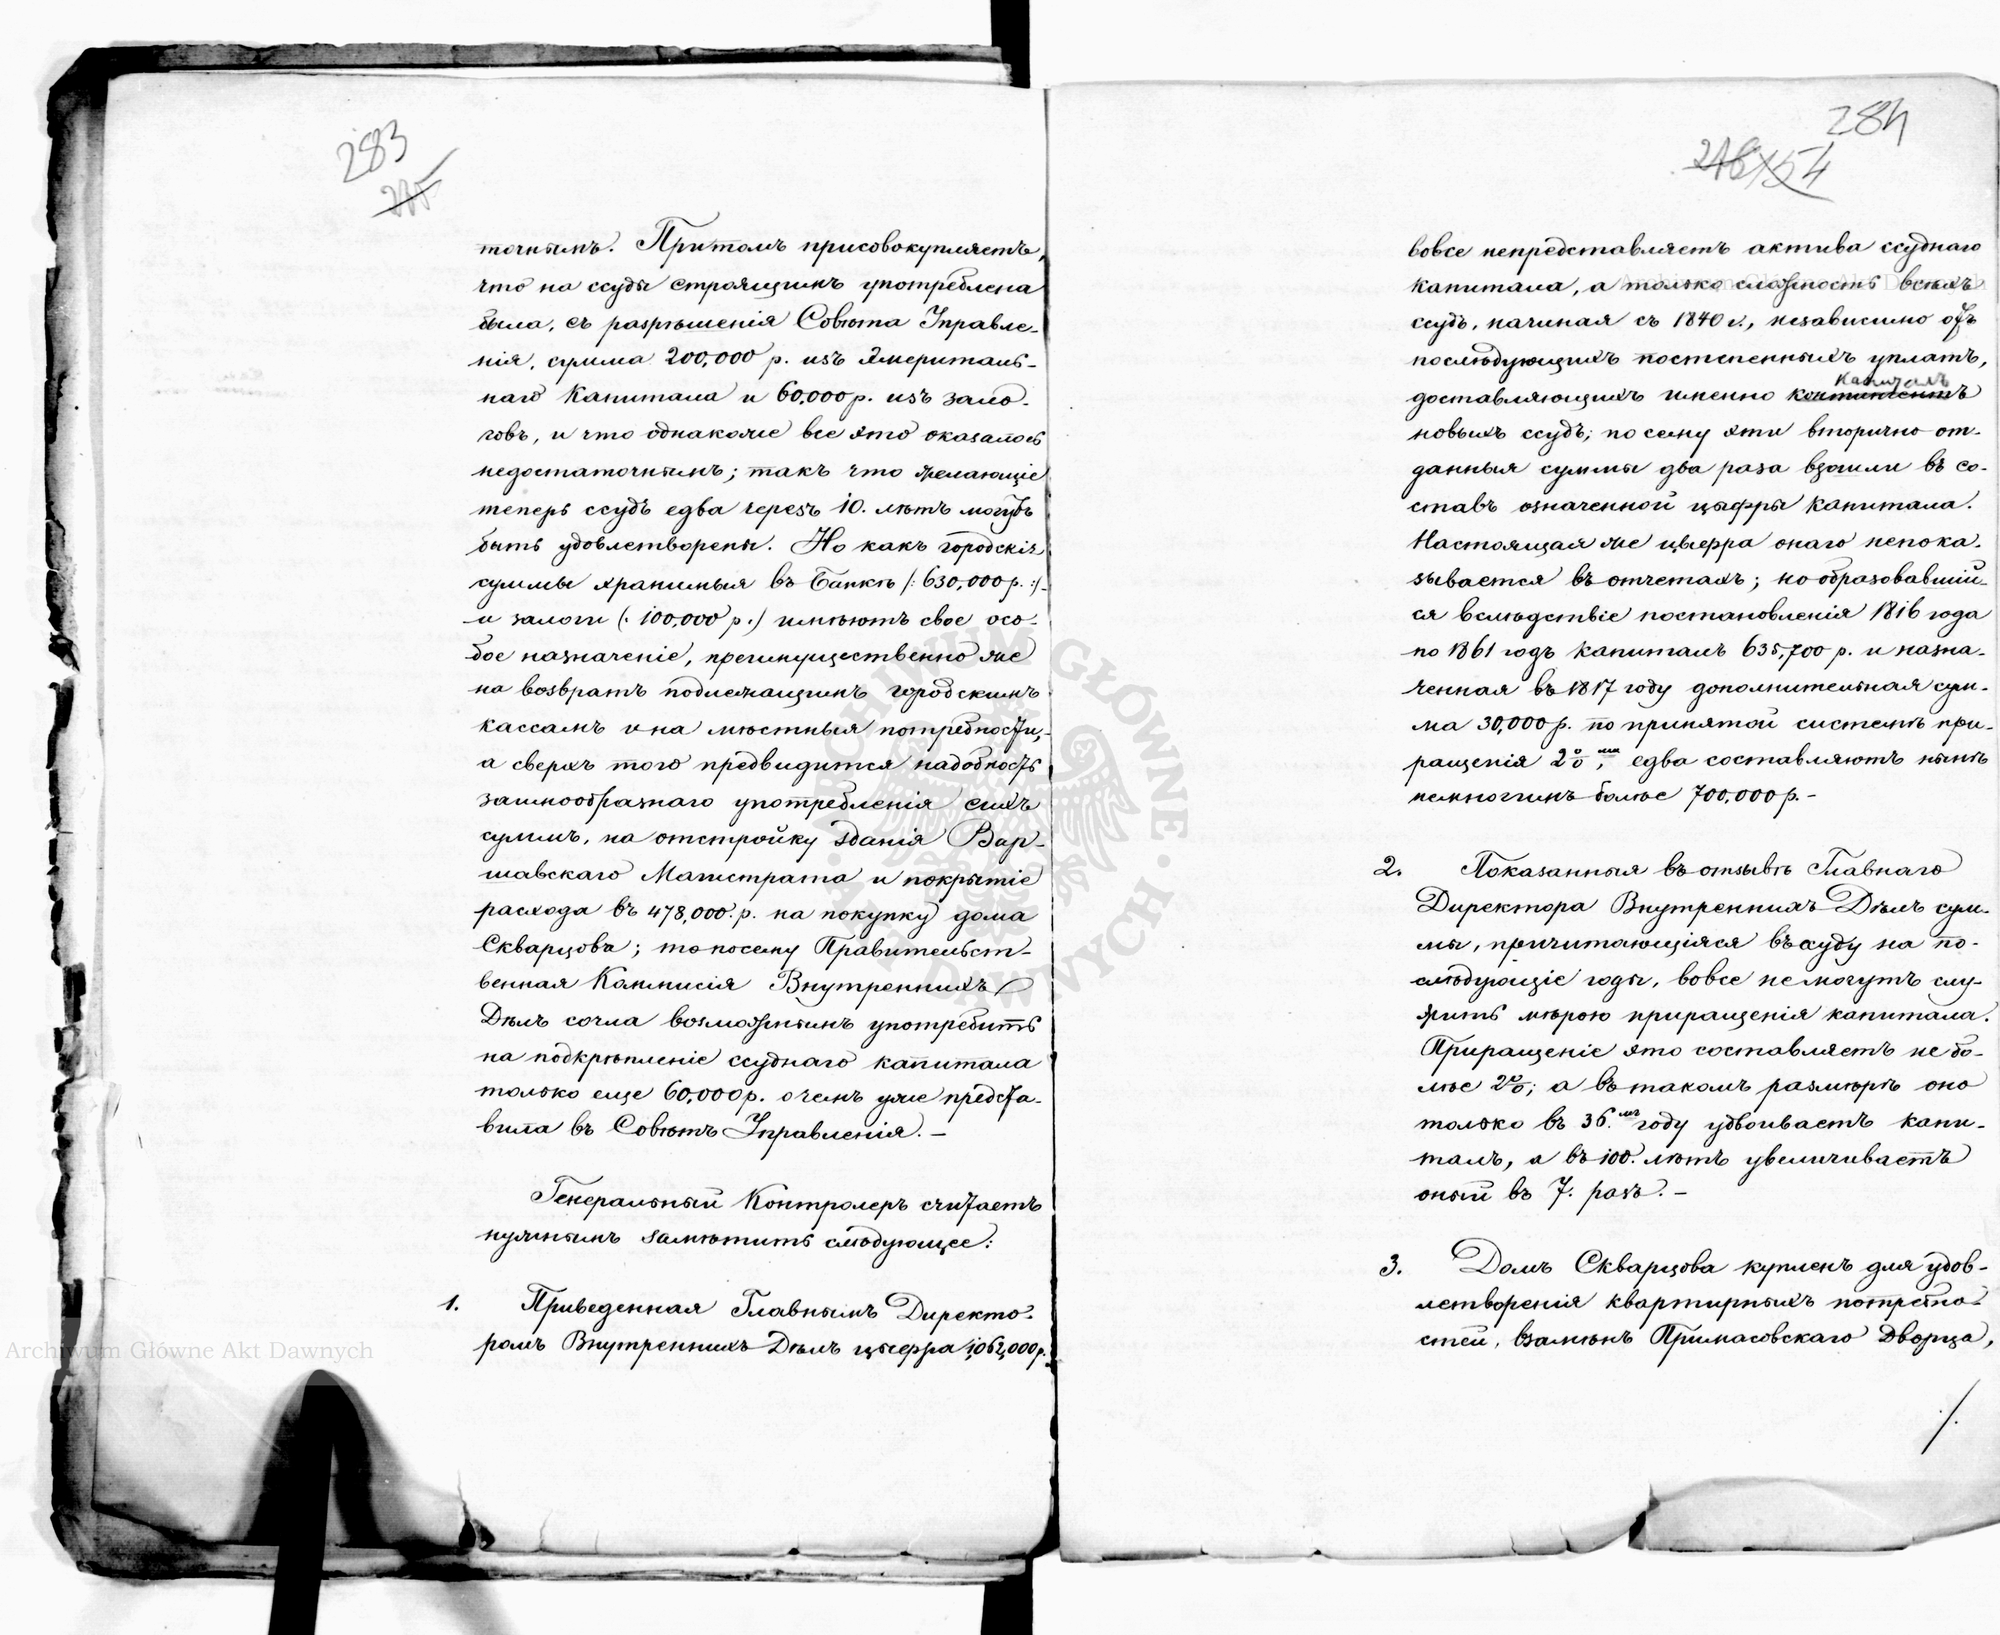 283
точнымъ. Притомъ присовокупляетъ,
что на ссуды строящимъ употреблена
была, съ разрѣшенія Совѣта Управле-
нія, сумма 200,000 р. изъ Эмериталь-
наго Капитала и 60,000 р. изъ зало-
говъ, и что однакоже все это оказалось
недостаточнымъ; такъ что желающіе
теперь ссудъ едва черезъ 10. лѣтъ могутъ
быть удовлетворены. Но какъ городскія
суммы хранимыя въ Банкѣ (: 630,000 р. :)
и залоги (: 100,000 р. :) имѣютъ свое осо-
бое назначеніе, преимущественно же
на возвратъ подлежащимъ городскимъ
кассамъ и на мѣстныя потребности,
а сверхъ того предвидится надобность
заимообразнаго употребленія сихъ
суммъ, на отстройку зданія Вар-
шавскаго Магистрата и покрытіе
расхода въ 478,000. р. на покупку дома
Скварцова; то посему Правительст-
венная Коммисія Внутреннихъ
Дѣлъ сочла возможнымъ употребить
на подкрѣпленіе ссуднаго капитала
только еще 60,000 р. о чемъ уже предста-
вила въ Совѣтъ Управленія. –
Генеральный Контролеръ считаетъ
нужнымъ замѣтить слѣдующее:
1. Приведенная Главнымъ Директо-
ромъ Внутреннихъ Дѣлъ цыфра 1,062,000 р.
Archiwum Główne Akt Dawnych
284
вовсе непредставляетъ актива ссуднаго
капитала, а только сложность всѣхъ
ссудъ, начиная съ 1840 г., независимо отъ
послѣдующихъ постепенныхъ уплатъ,
капиталъ
доставляющихъ именно контингентъ
новыхъ ссудъ; по сему эти вторично от-
данныя суммы два раза взошли въ со-
ставъ означенной цыфры капитала.
Настоящая же цыфра онаго непока-
зывается въ отчетахъ; но образовавшій-
ся вслѣдствіе постановленія 1816 года
по 1861 годъ капиталъ 635,700 р. и назна-
ченная въ 1817 году дополнительная сум-
ма 30,000 р. по принятой системѣ при-
ращенія 2%, едва составляютъ нынѣ
немногимъ болѣе 700,000 р. –
2. Показанныя въ отзывѣ Главнаго
Директора Внутреннихъ Дѣлъ сум-
мы, причитающіяся въ ссуду на по-
слѣдующіе годы, вовсе не могутъ слу-
жить мѣрою приращенія капитала.
Приращеніе это составляетъ не бо-
лѣе 2%; а въ такомъ размѣрѣ оно
только въ 36.мъ году удвоиваетъ капи-
талъ, а въ 100. лѣтъ увеличиваетъ
оный въ 7. разъ. –
3. Домъ Скварцова купленъ для удов-
летворенія квартирныхъ потребно-
стей, взамѣнъ Примасовскаго Дворца,
./.
ARCHIWUM GŁÓWNE AKT DAWNYCH